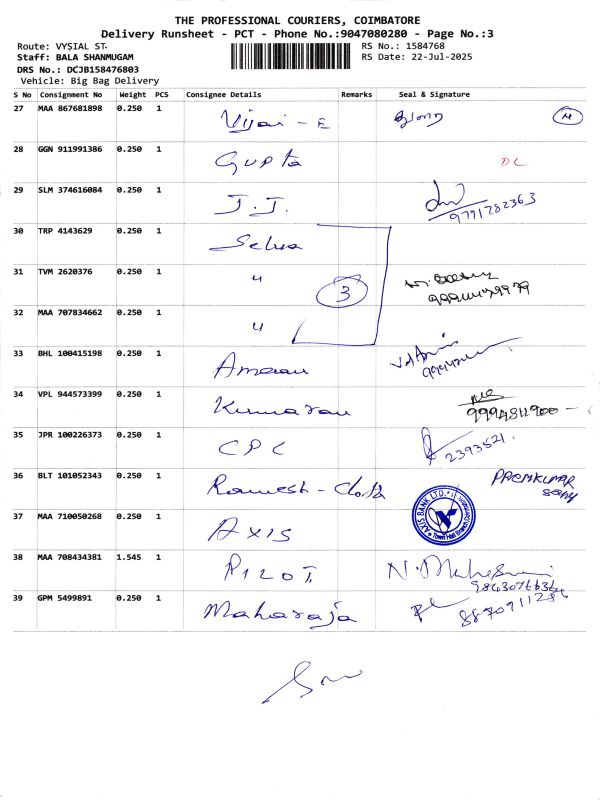 THE PROFESSIONAL COURIERS, COIMBATORE
Delivery Runsheet - PCT - Phone No.:9047080280 - Page No.:3
Route: VYSIAL ST. RS No.: 1584768
Staff: BALA SHANMUGAM RS Date: 22-Jul-2025
DRS No.: DCJB158476803
Vehicle: Big Bag Delivery
S No Consignment No Weight PCS Consignee Details Remarks Seal & Signature
27 MAA 867681898 0.250 1 Vijai - E
28 GGN 911991386 0.250 1 Gupta DL
29 SLM 374616084 0.250 1 J.J. 9791782363
30 TRP 4143629 0.250 1 Selva
31 TVM 2620376 0.250 1 " 3
32 MAA 707834662 0.250 1 "
33 BHL 100415198 0.250 1
34 VPL 944573399 0.250 1 Kumaran
35 JPR 100226373 0.250 1 CPC 2393521.
36 BLT 101052343 0.250 1 Ramesh - PREMKUMAR
37 MAA 710050268 0.250 1 AXIS AXIS BANK LTD.
38 MAA 708434381 1.545 1 PILOT N.
39 GPM 5499891 0.250 1 Maharaja